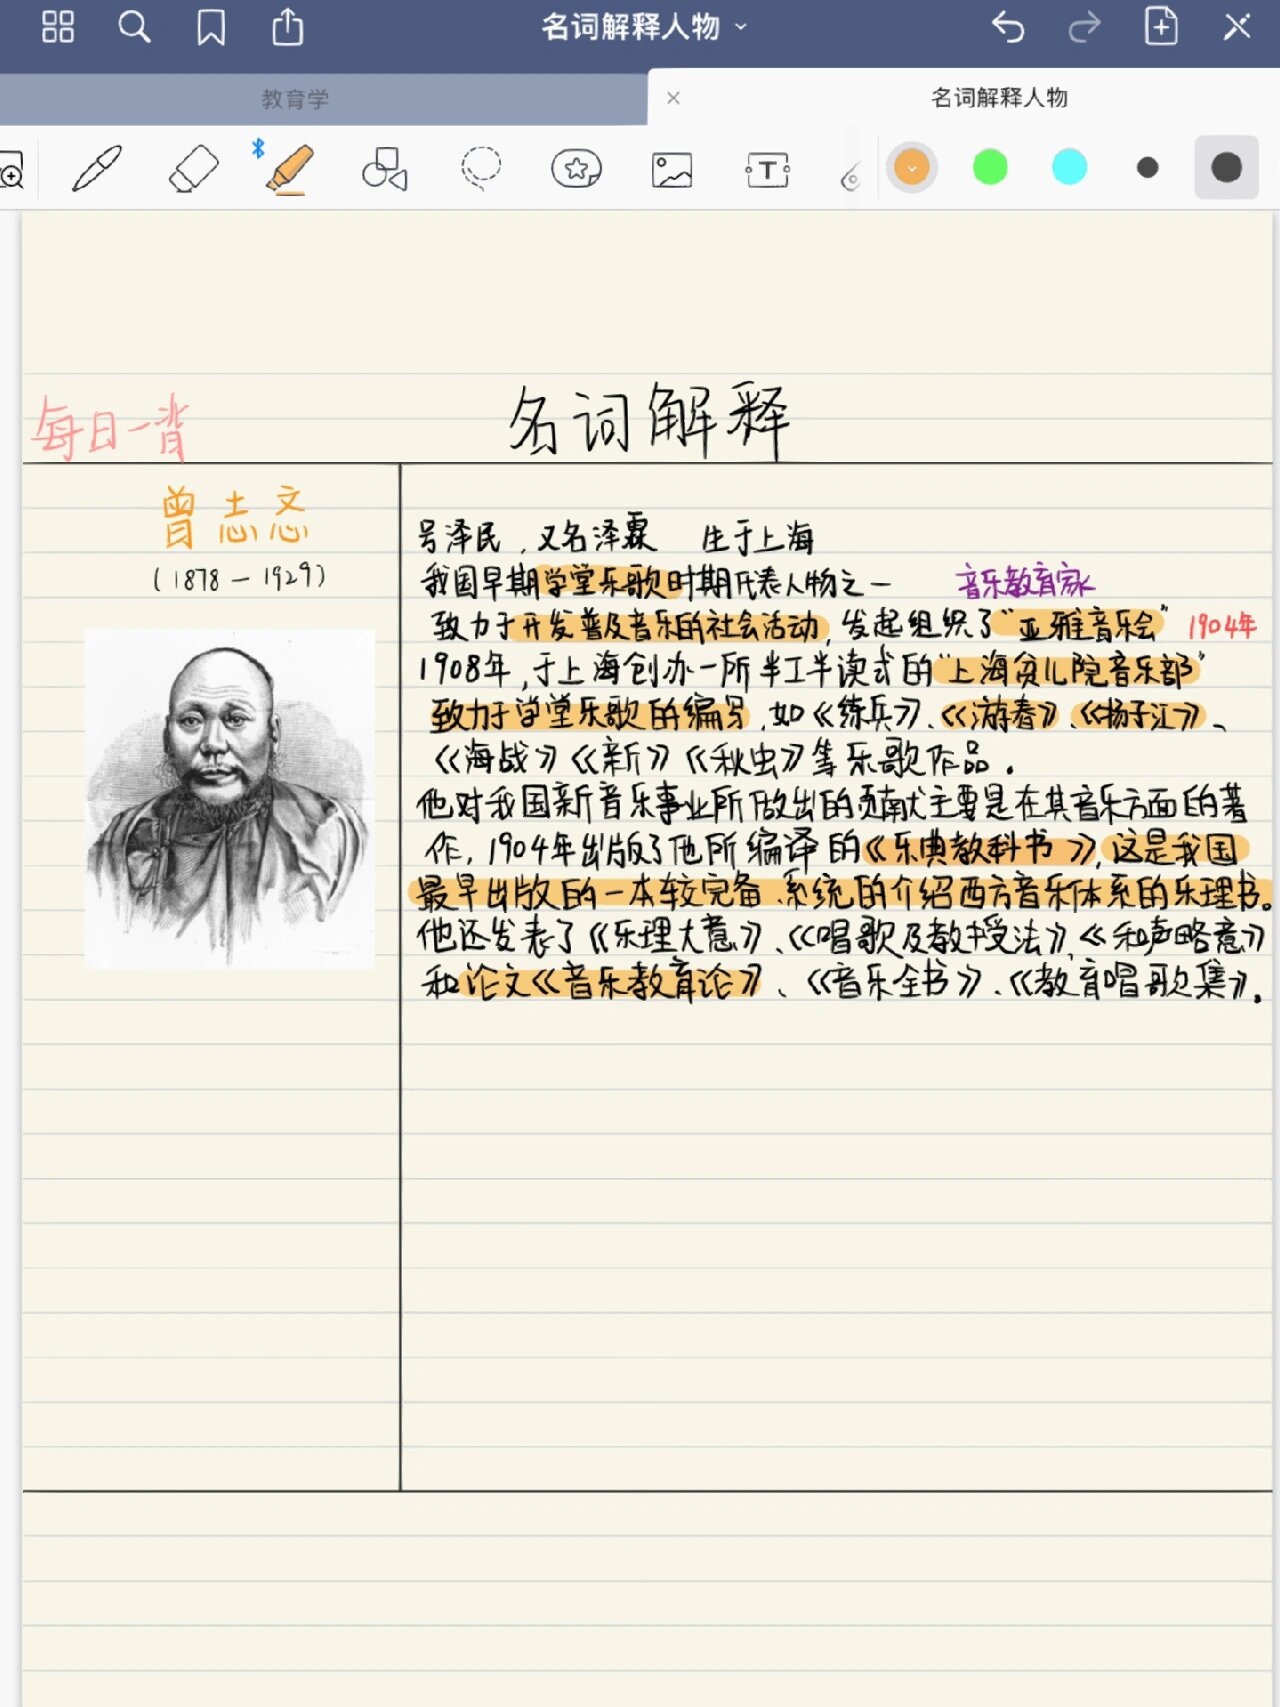 名词解释人物
教育学
名词解释人物
T
每日一背
名词解释
曾志忞
(1878－1929)
号泽民，又名泽霖 生于上海
我国早期学堂乐歌时期代表人物之一 音乐教育家
致力于开发普及音乐的社会活动，发起组织了“亚雅音乐会” 1904年
1908年，于上海创办一所半工半读式的“上海贫儿院音乐部”
致力于学堂乐歌的编写，如《练兵》、《游春》、《扬子江》、
《海战》《新》《秋虫》等乐歌作品。
他对我国新音乐事业所做出的贡献主要是在其音乐方面的著
作，1904年出版了他所编译的《乐典教科书》，这是我国
最早出版的一本较完备、系统的介绍西方音乐体系的乐理书。
他还发表了《乐理大意》、《唱歌及教授法》、《和声略意》
和论文《音乐教育论》、《音乐全书》、《教育唱歌集》。